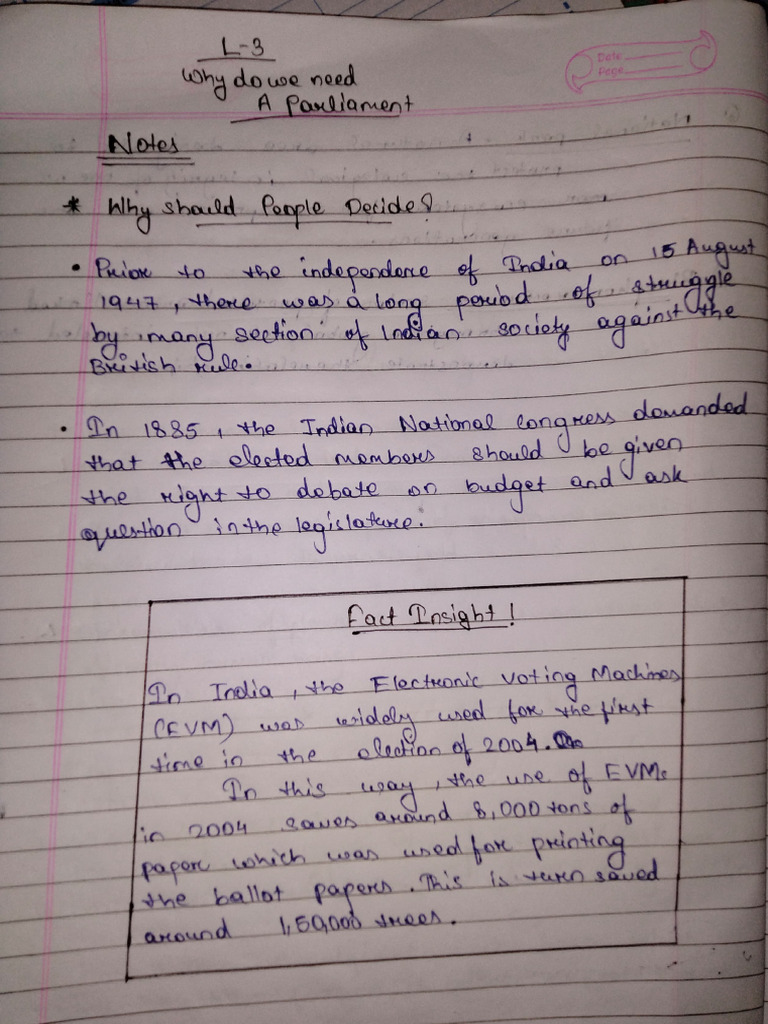 L-3
Date
Page
Why do we need
A Parliament
Notes
* Why should People Decide?
• Prior to the independence of India on 15 August
1947, there was a long period of struggle
by many section of Indian society against the
British rule.
• In 1885, the Indian National Congress demanded
that the elected members should be given
the right to debate on budget and ask
question in the legislature.
Fact Insight!
In India, the Electronic Voting Machines
(EVM) was widely used for the first
time in the election of 2004.
In this way, the use of EVMs
in 2004 saves around 8,000 tons of
paper which was used for printing
the ballot papers. This is turn saved
around 1,50,000 trees.